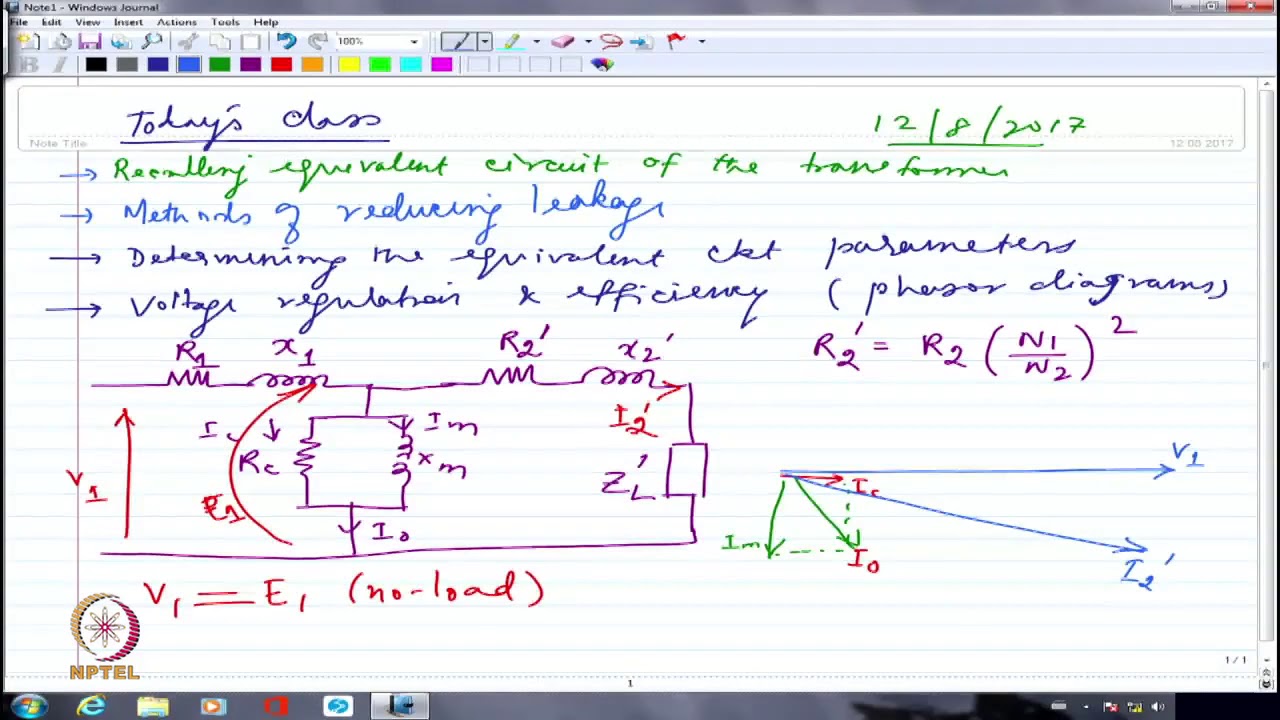 Note1 - Windows Journal
File Edit View Insert Actions Tools Help
100%
B I
Today's class
12/8/2017
Note Title
12-08-2017
→ Recalling equivalent circuit of the transformer
→ Methods of reducing leakage
→ Determining the equivalent ckt parameters
→ Voltage regulation & efficiency (phasor diagrams)
R1 x1 R2' x2'
R2' = R2 (N1/N2)^2
V1
E1
Rc
Im
xm
I0
I2'
ZL'
V1
Ic
Im
I0
I2'
V1 = E1 (no-load)
NPTEL
1 / 1
1